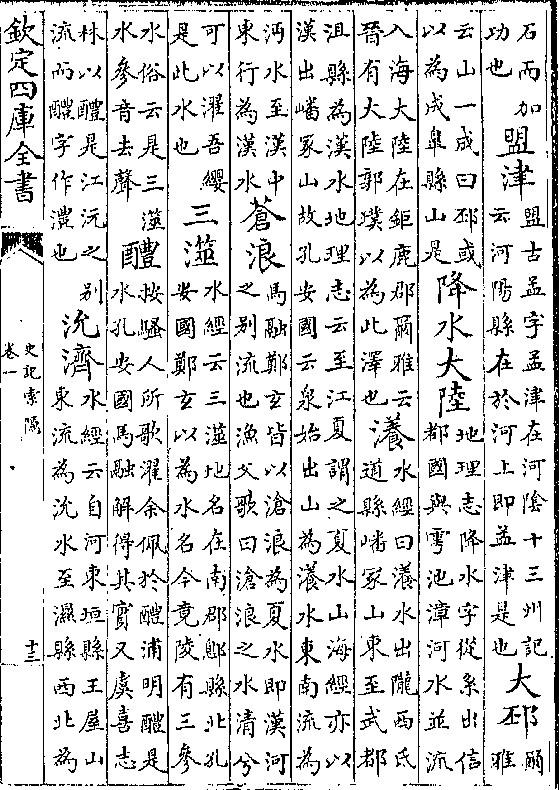 石而加
功也
盟津
盟古孟字孟津在河陰十三州記
云河陽縣在於河上即孟津是也
大邳
爾
雅
云山一成曰邳或
以為成臯縣山是
降水大陸
地理志降水字從系出信
都國與虖池漳河水並流
入海大陸在鉅鹿郡爾雅云
晉有大陸郭璞以為此澤也
瀁
水經曰瀁水出隴西氐
道縣嶓冢山東至武都
沮縣為漢水地理志云至江夏謂之夏水山海經亦以
漢出嶓冢山故孔安國云泉始出山為瀁水東南流為
沔水至漢中
東行為漢水
蒼浪
馬融鄭玄皆以滄浪為夏水即漢河
之别流也漁父歌曰滄浪之水清兮
可以濯吾纓
是此水也
三澨
水經云三澨地名在南郡縣北孔
安國鄭玄以為水名今竟陵有三參
水俗云是三澨
水參音去聲
醴
按騷人所歌濯余佩於醴浦明醴是
水孔安國馬融解得其實又虞喜志
林以醴是江沅之别
流而醴字作澧也
沇濟
水經云自河東垣縣王屋山
東流為沇水至濕縣西北為
欽定四庫全書
史記索隱
卷一
十三